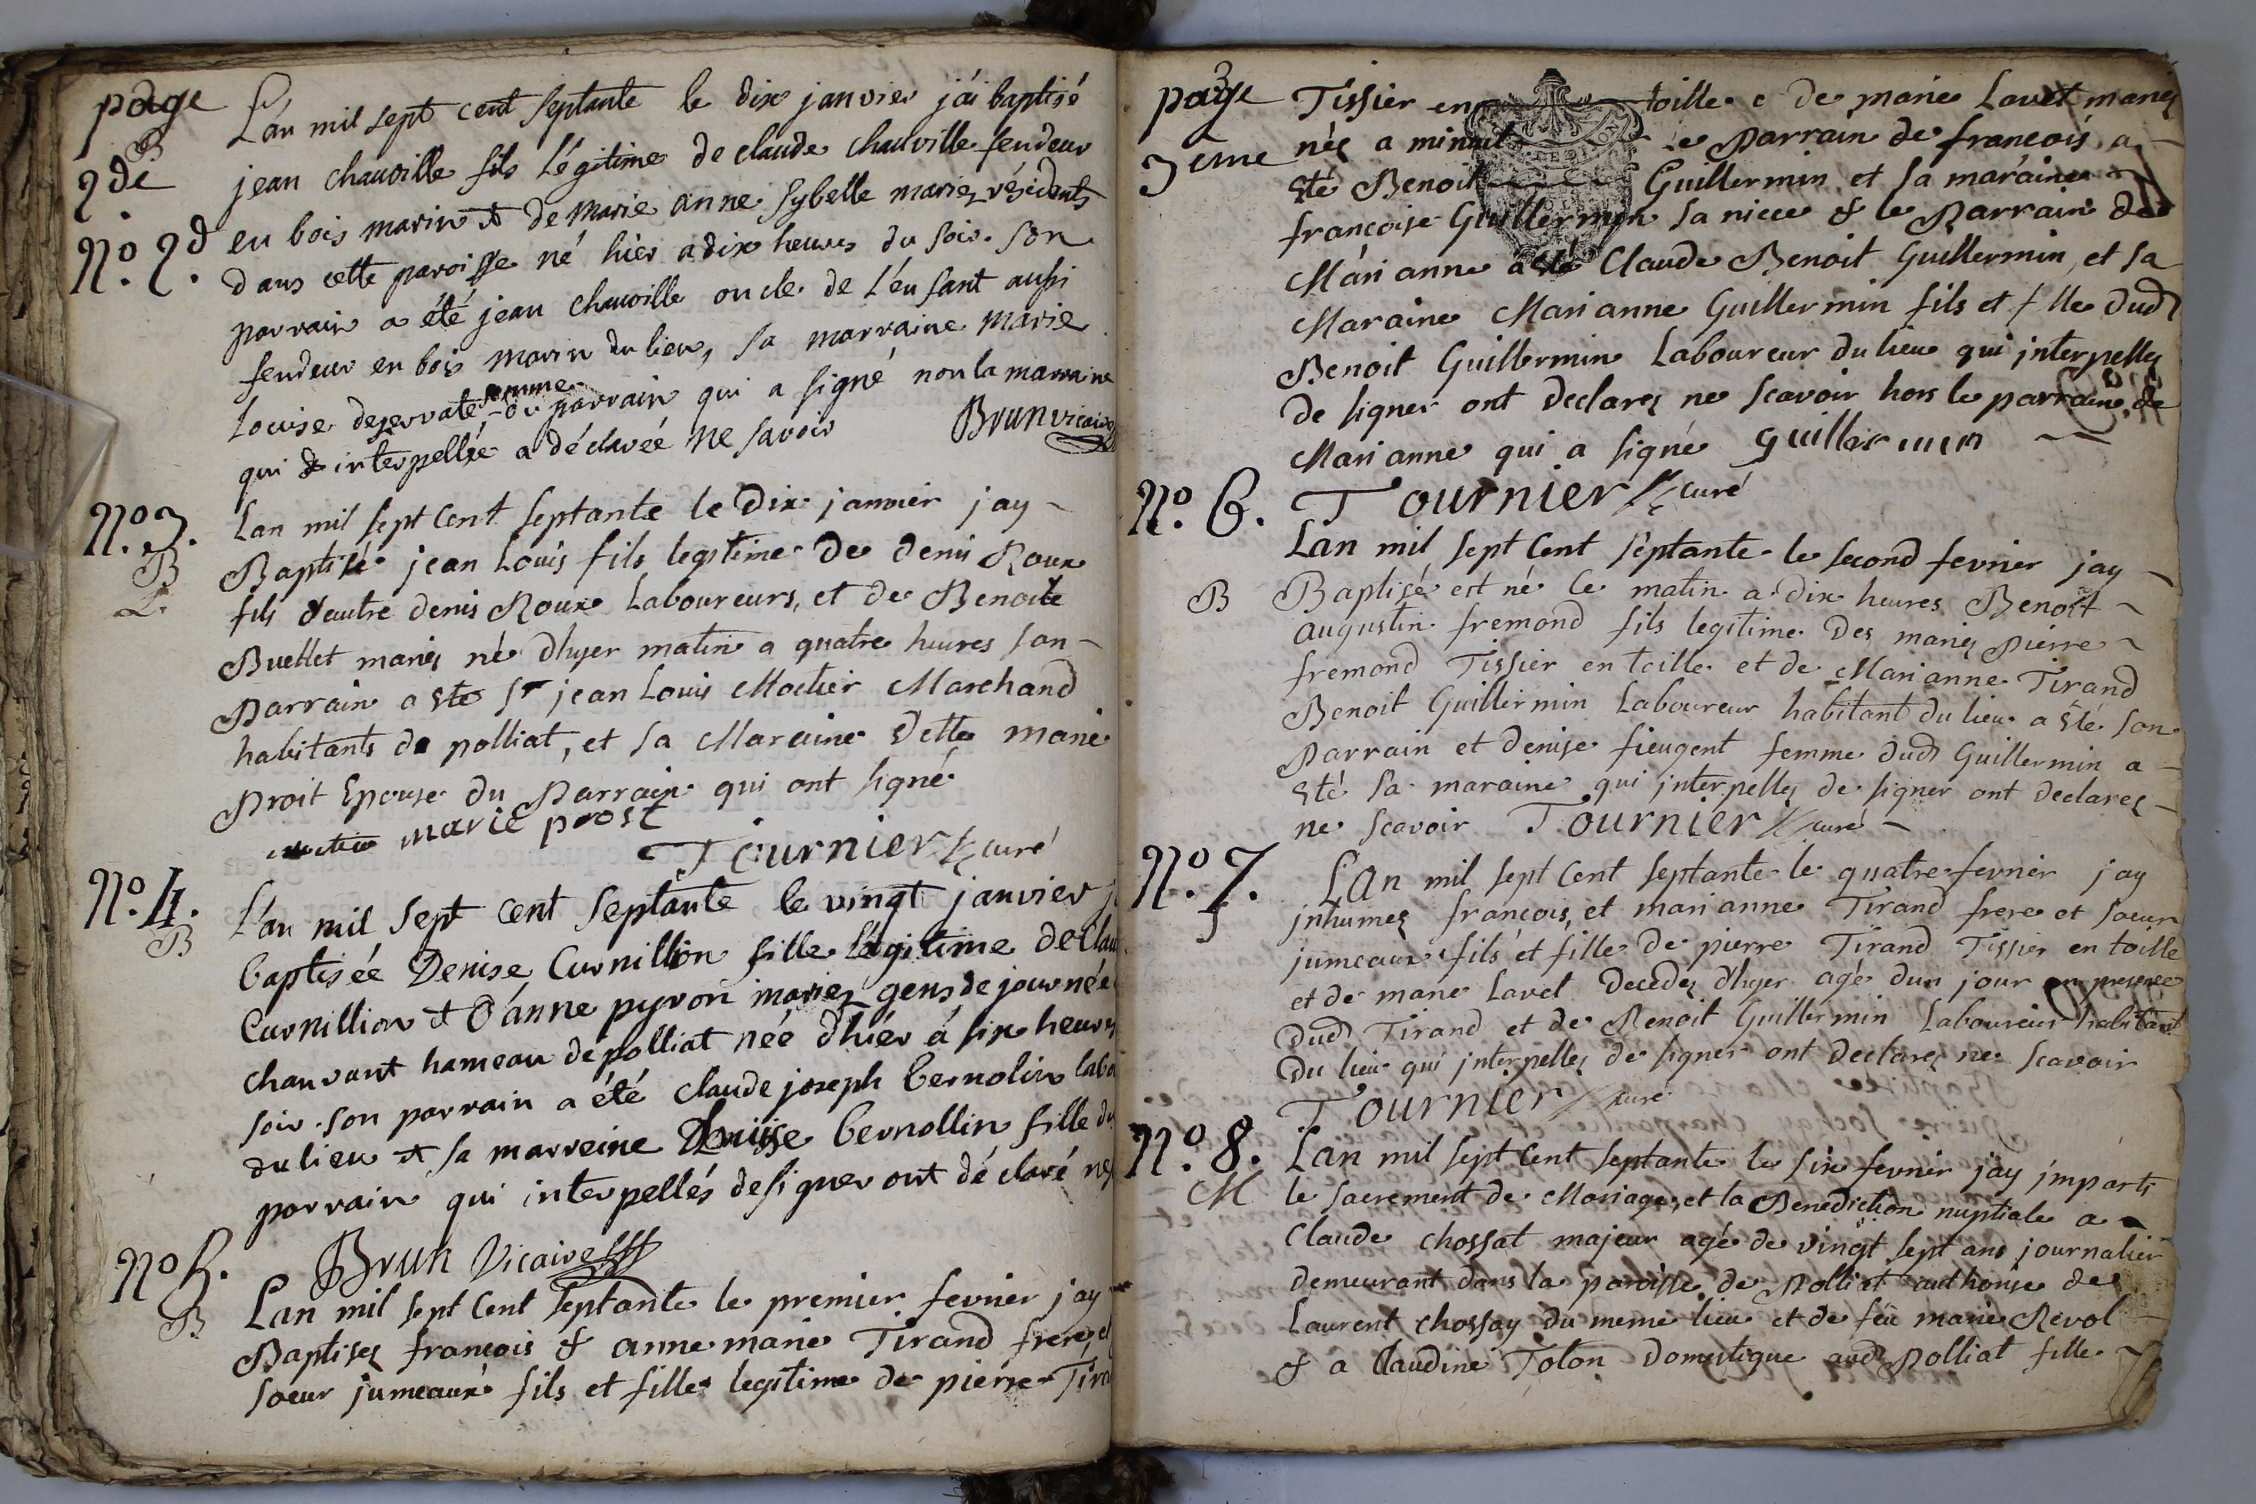 page
2de
L'an mil sept cent septante le dix janvier j'ai baptisé
B
jean chauville fils légitime de claude chauville fendeur
No. 2d
en bois marin & de marie anne sybelle mariez résidents
dans cette paroisse né hier a dix heures du soir. son
parrain a été jean chauville oncle de l'enfant aussi
fendeur en bois marin du lieu, sa marraine marie
femme
Louise dejervate du parrain qui a signé non la marraine
qui interpellée a déclarée ne savoir Brun vicaire
No. 3.
B
Lan mil sept Cent septante le dix janvier jay
Baptisé jean Louis fils legitime de denis Roux
fils d'autre denis Roux Laboureurs, et de Benoite
Buellet mariez né d'hyer matin a quatre heures son
Parrain a eté sr jean Louis Moctier Marchand
habitants de polliat, et sa Maraine dette marie
Proit Epouse du Parrain qui ont signé
marie prost
Tournier curé
No. 4.
B
L'an mil sept cent septante le vingt janvier j
baptisée Denise Curnillion fille légitime de Clau
Curnillion & d'anne pyron mariez gens de journée
chauvant hameau de polliat née d'hiér á six heures
soir. son parrain a été claude joseph bernolin labo
du lieu & sa marreine Denise bernollin fille du
parrain qui interpellés de signer ont déclaré ne
Brun Vicaire
No 5.
B
Lan mil sept Cent septante le premier fevrier jay
Baptisez francois & anne marie Tirand frere et
soeur jumeaux fils et fille legitime de pierre Tira
page
3
3eme
Tissier en toille e de marie Lavet mariez
nés a minuit le Parrain de francois a
eté Benoit Guillermin et sa maraine
francoise Guillermin sa niece & le Parrain de
Marianne a eté Claude Benoit Guillermin, et sa
Maraine Marianne Guillermin fils et fille dud
Benoit Guillermin Laboureur du lieu qui interpellez
de signer ont declarez ne scavoir hors le parrain de
Marianne qui a signé guillermin
No. 6.
Tournier curé
Lan mil sept Cent septante le second fevrier jay
B
Baptisé est né ce matin a dix heures Benoit
augustin fremond fils legitime des mariez Pierre
fremond Tissier en toille et de Marianne Tirand
Benoit Guillermin Laboureur habitant du lieu a eté son
Parrain et denise fieugent femme dud Guillermin a
eté sa maraine qui interpellez de signer ont declarez
ne scavoir Tournier curé
No. 7.
Lan mil sept Cent septante le quatre fevrier jay
jnhumez francois, et marianne Tirand frere et soeur
jumeaux fils et fille de pierre Tirand Tissier en toille
et de marie Lavet decedez d'hyer agé dun jour en presence
dud Tirand et de Benoit Guillermin Laboureur habitant
du lieu qui interpellez de signer ont declarez ne scavoir
Tournier curé
No. 8.
M
Lan mil sept Cent septante le six fevrier jay jmparti
le sacrement de Mariage, et la Benediction nuptiale a
Claude chossat majeur agé de vingt sept ans journalier
demeurant dans la paroisse de Polliat authorise de
Laurent chossay du meme lieu et de feü marie Revol
& a Claudine Tolon domestique aud Polliat fille